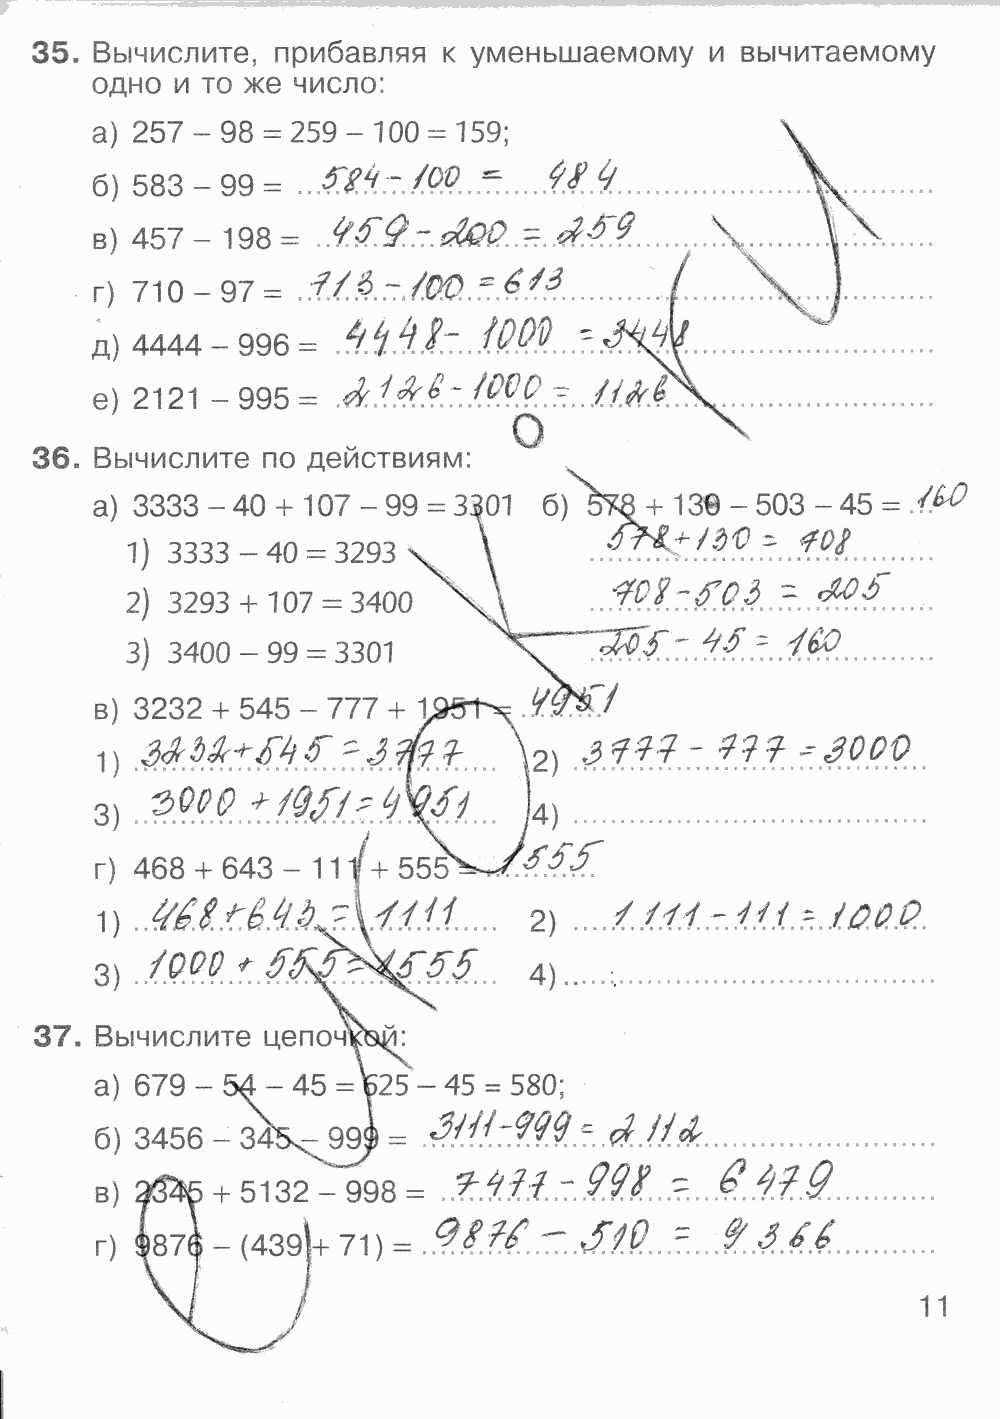 35. Вычислите, прибавляя к уменьшаемому и вычитаемому
одно и то же число:
а) 257 – 98 = 259 – 100 = 159;
б) 583 – 99 = 584 - 100 = 484
в) 457 – 198 = 459 - 200 = 259
г) 710 – 97 = 713 - 100 = 613
д) 4444 – 996 = 4448 - 1000 = 3448
е) 2121 – 995 = 2126 - 1000 = 1126
36. Вычислите по действиям:
а) 3333 – 40 + 107 – 99 = 3301 б) 578 + 130 – 503 – 45 = 160
1) 3333 – 40 = 3293 578 + 130 = 708
2) 3293 + 107 = 3400 708 - 503 = 205
3) 3400 – 99 = 3301 205 - 45 = 160
в) 3232 + 545 – 777 + 1951 = 4951
1) 3232 + 545 = 3777 2) 3777 - 777 = 3000
3) 3000 + 1951 = 4951 4)
г) 468 + 643 – 111 + 555 = 1555
1) 468 + 643 = 1111 2) 1111 - 111 = 1000
3) 1000 + 555 = 1555 4)
37. Вычислите цепочкой:
а) 679 – 54 – 45 = 625 – 45 = 580;
б) 3456 – 345 – 999 = 3111 - 999 = 2112
в) 2345 + 5132 – 998 = 7477 - 998 = 6479
г) 9876 – (439 + 71) = 9876 - 510 = 9366
11